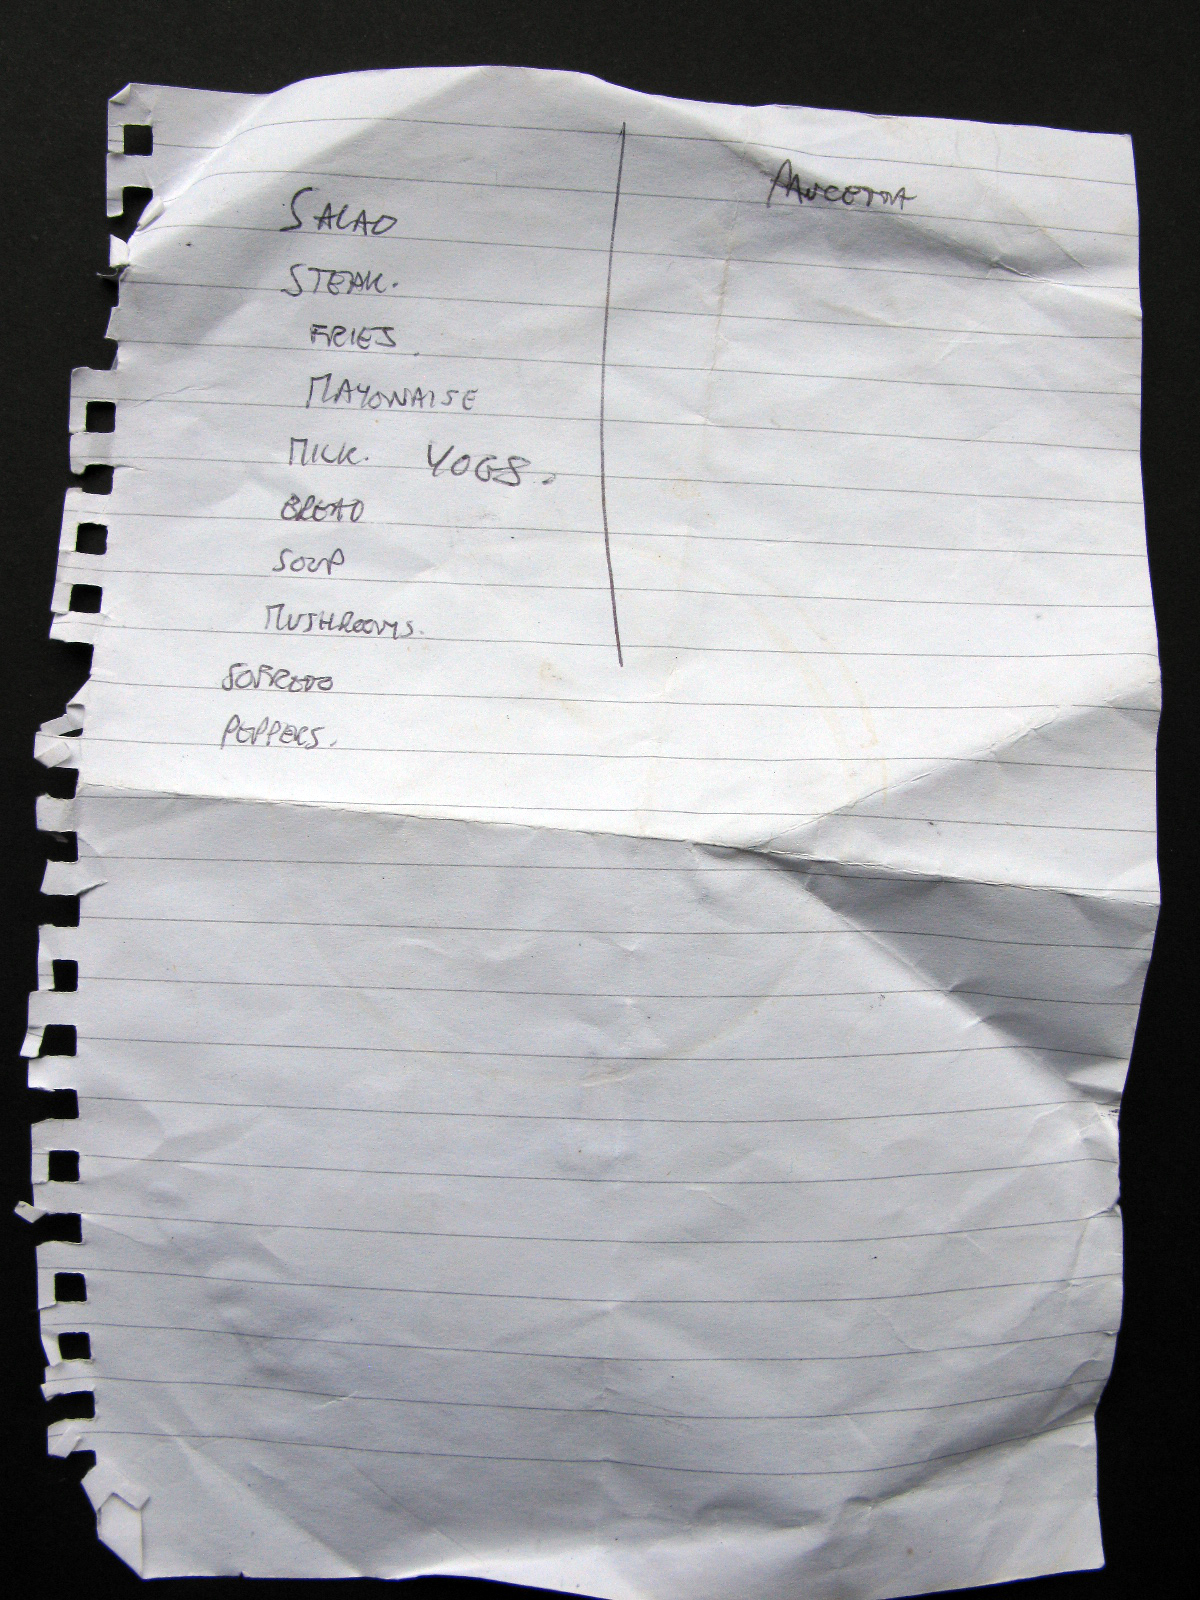 SALAD
STEAK.
FRIES
MAYONAISE
MILK. YOGS.
BREAD
SOUP
MUSHROOMS.
PEPPERS.
PANCETTA